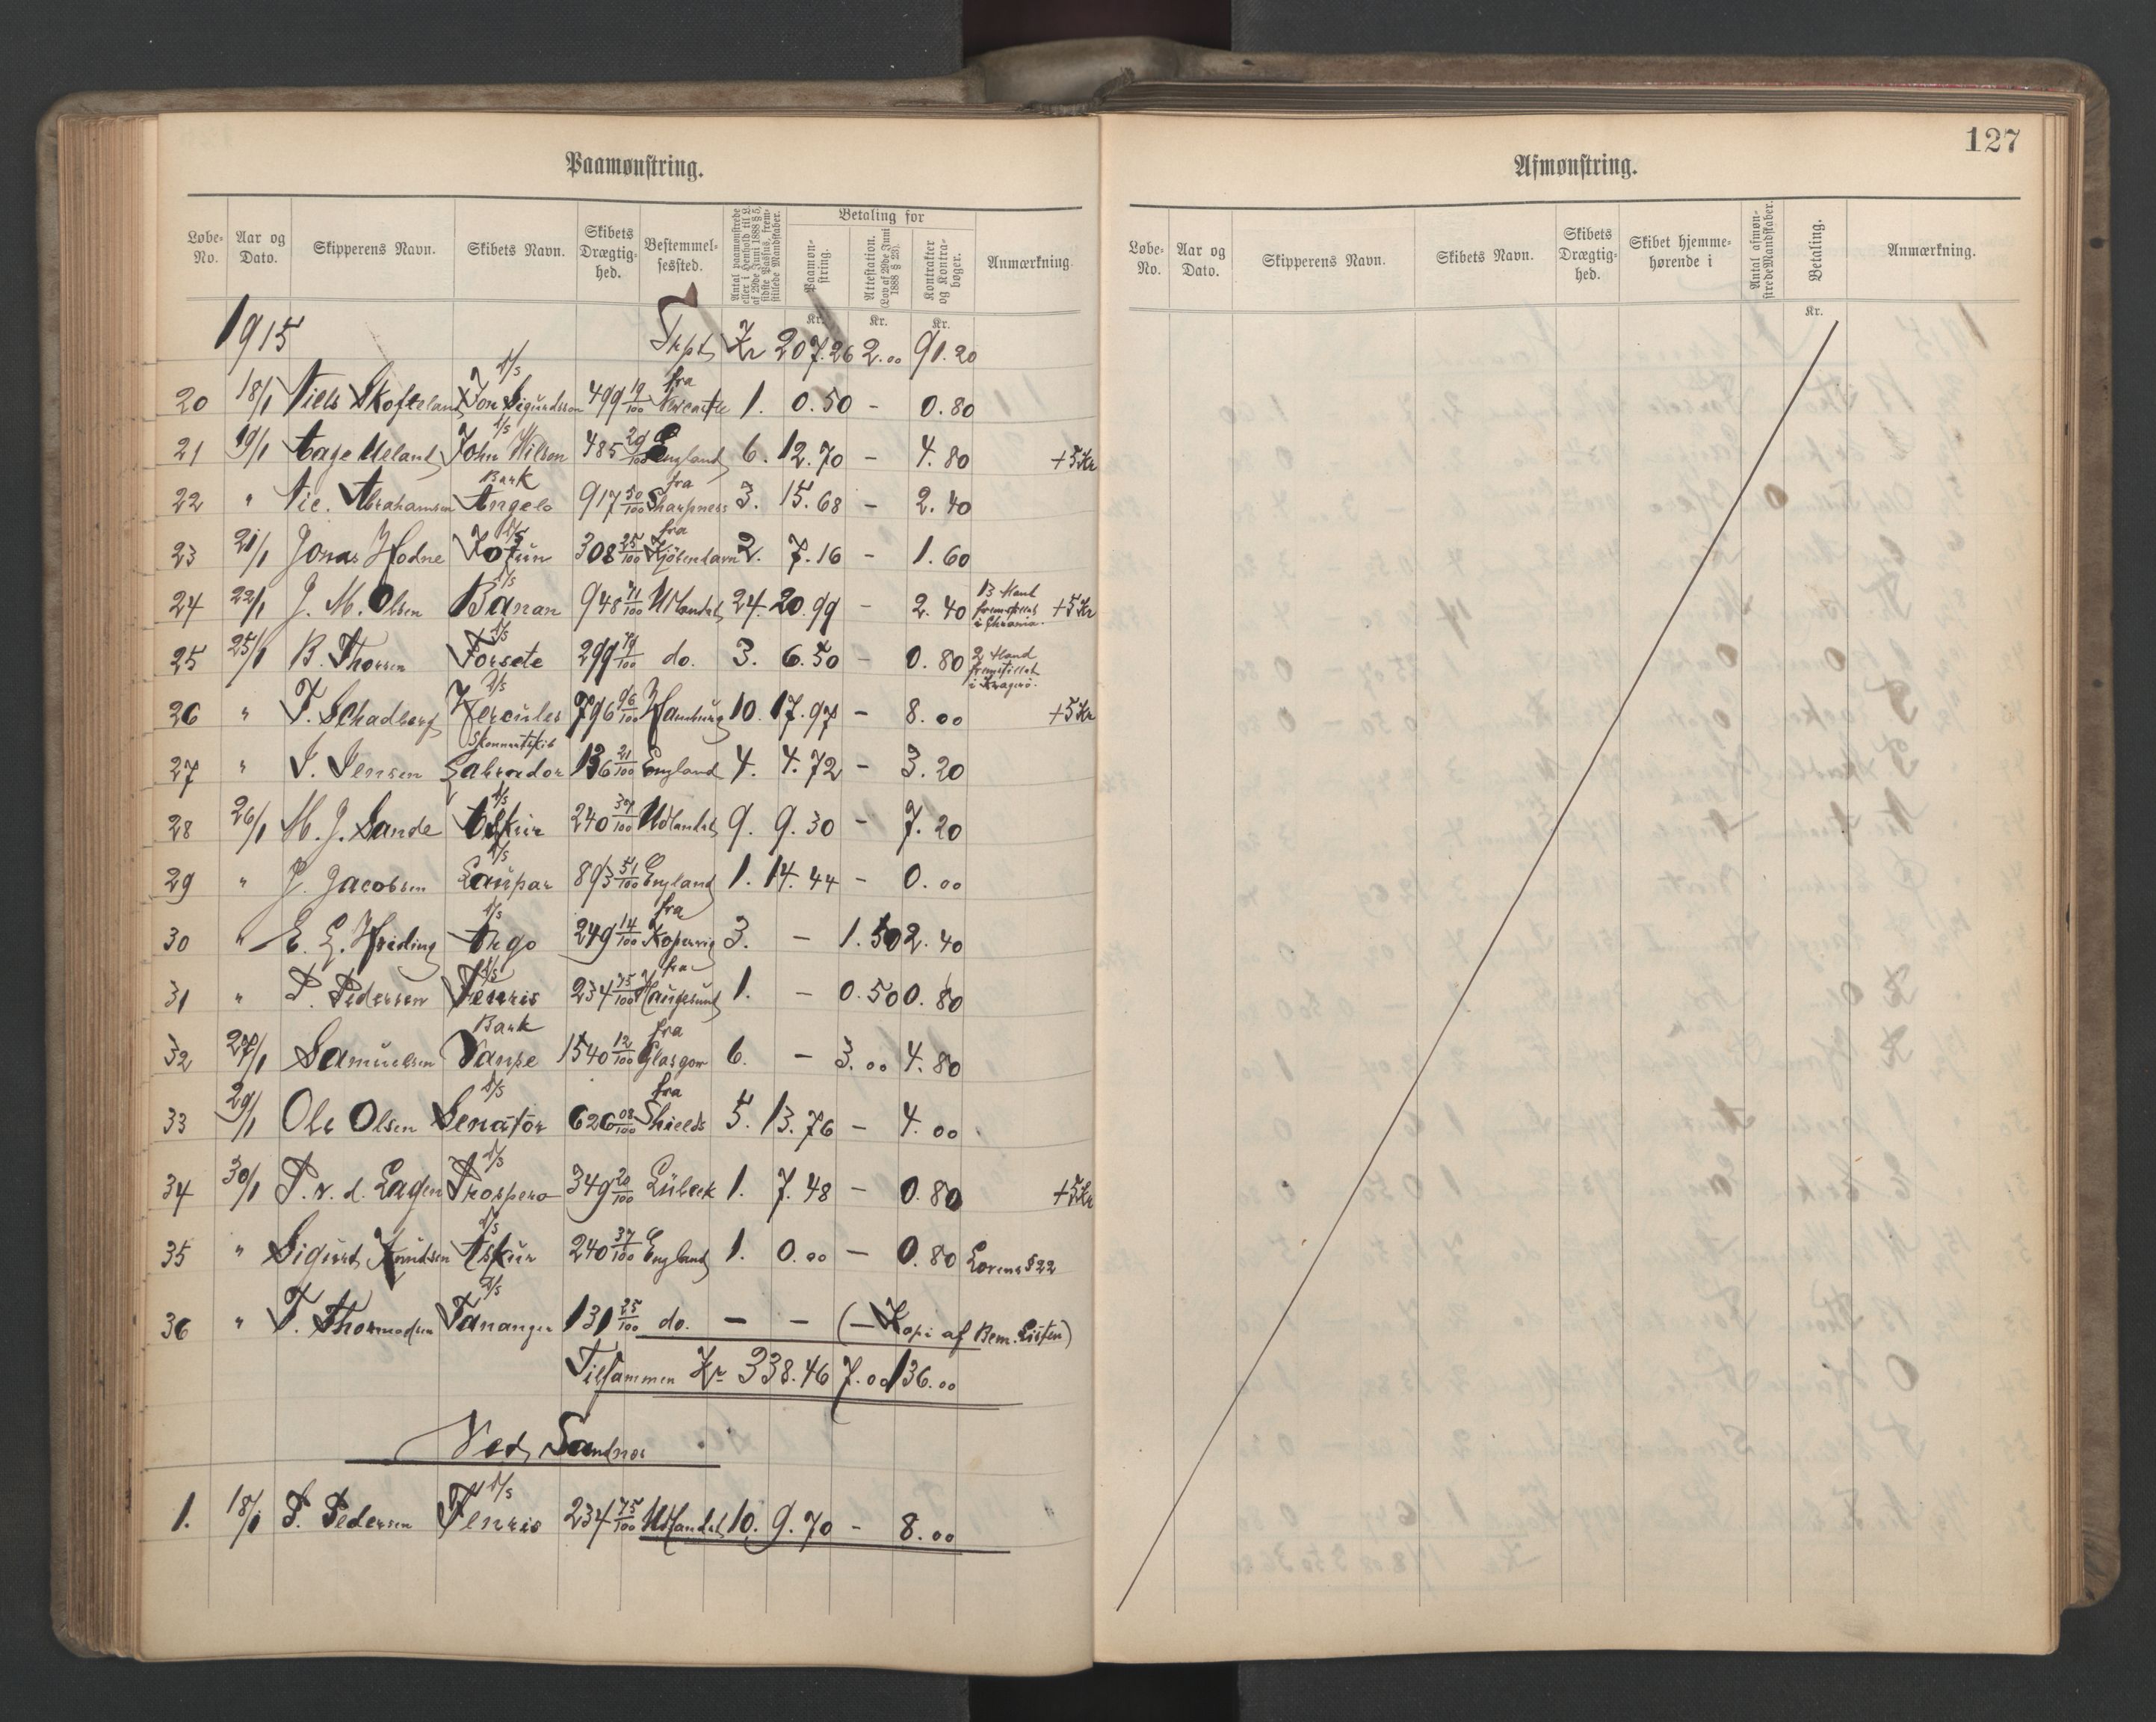 Paamønstring.
Løbe-No. Aar og Dato. Skipperens Navn. Skibets Navn. Skibets Drægtig-hed. Bestemmel-sessted. Antal paamønstrede eller i Henhold til L. af 29de Juni 1888 § 5, sidste Passus, frem-stillede Mandskaber. Betaling for Paamøn-string. Attestation. (Lov af 29de Juni 1888 § 23). Kontrakter og Kontra-bøger. Anmærkning.
Kr. Kr. Kr.
1915 Trspt Kr 207.26 2.00 91.20
20 18/1 Niels Skofteland D/S Jon Sigurdsson 499 19/100 fra Newcastle 1. 0.50 - 0.80
21 19/1 Aage Ueland D/S John Wilson 485 29/100 England 6. 12.70 - 4.80 +5 Kr
22 " Nic. Abrahamsen Bark Angelo 917 50/100 fra Sharpness 3. 15.68 - 2.40
23 21/1 Jonas Hodne D/S Kotun 308 25/100 fra Kjöbenhavn 2. 7.16 - 1.60
24 22/1 J. M. Olsen D/S Banan 948 71/100 Udlandet 24 20.99 - 2.40 13 Mand fremstillet i Chrania. +5 Kr
25 25/1 B. Thorsen D/S Forsete 299 79/100 do. 3. 6.50 - 0.80 2 Mand fremstillet i Kragerö.
26 " F. Schadberg D/S Hercules 796 96/100 Hamburg 10. 17.97 - 8.00 +5 Kr
27 " J. Jensen Skonnertskib Labrador 136 21/100 England 4. 4.72 - 3.20
28 26/1 M. J. Sande D/S Askur 240 37/100 Udlandet 9. 9.30 - 7.20
29 " J. Jacobsen D/S Laupar 893 51/100 England 1. 14.44 - 0.00
30 " E. E. Hriding D/S Argo 249 14/100 fra Kopervig 3. - 1.50 2.40
31 " P. Pedersen D/S Fenris 234 75/100 fra Haugesund 1. - 0.50 0.80
32 27/1 Samuelsen Bark Vanse 1540 12/100 fra Glasgow 6. - 3.00 4.80
33 29/1 Ole Olsen D/S Senator 626 08/100 fra Shields 5. 13.76 - 4.00
34 30/1 P. v. d. Lagen D/S Prospero 349 20/100 Lübeck 1. 7.48 - 0.80 +5 Kr
35 " Sigurd Knudsen D/S Askur 240 37/100 England 1. 0.00 - 0.80 Lovens § 22
36 " T. Thormodsen D/S Tananger 131 25/100 do. - - (- Kopi af Bem. Listen)
Tilsammen Kr 338.46 7.00 136.00
Ved Sandnes
1. 18/1 P. Pedersen D/S Fenris 234 75/100 Udlandet 10. 9.70 - 8.00
127
Afmønstring.
Løbe-No. Aar og Dato. Skipperens Navn. Skibets Navn. Skibets Drægtig-hed. Skibet hjemme-hørende i Antal afmøn-strede Mandskaber. Betaling. Anmærkning.
Kr.